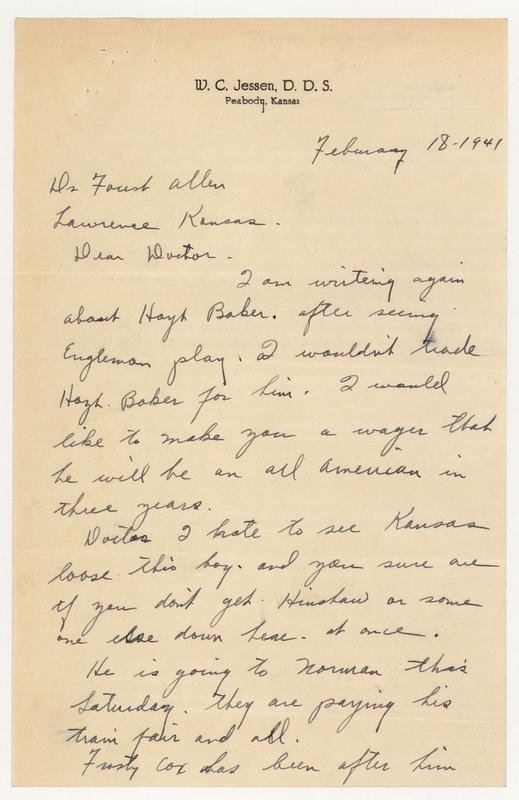 W. C. Jessen, D. D. S.
Peabody, Kansas
February 18-1941
Dr Foust Allen
Lawrence Kansas.
Dear Doctor-
I am writing again
about Hoyt Baker. after seeing
Engleman play. I wouldn't trade
Hoyt. Baker for him. I would
like to make you a wager that
he will be an all American in
three years.
Doctor I hate to see Kansas
loose this boy. and you sure are
if you don't get Hinshaw or some
one else down here- at once.
He is going to Norman this
Saturday. they are paying his
train fair and all.
Frosty Cox has been after him